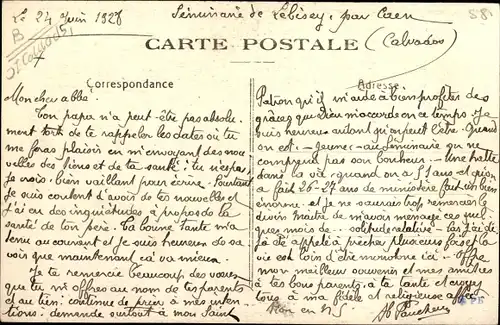 Le 24 Juin 1928 Séminaire de Lébisey, par Caen
(Calvados)
CARTE POSTALE
Correspondance
Adresse
Mon cher abbé.
Ton papa n'a peut-être pas absolu-
ment tort de te rappeler les dates où tu
me feras plaisir en m'envoyant des nou
velles des tiens et de ta santé; tu n'es pas
je crois, bien vaillant pour écrire. Pourtant
je suis content d'avoir de tes nouvelles et
j'ai eu des inquiétudes à propos de la
santé de ton père. Ta bonne tante m'a
tenu au courant et je suis heureux de sa
voir que maintenant ça va mieux.
Je te remercie beaucoup des vœux
que tu m'offres au nom de tes parents
et au tien: continue de prier à mes inten
tions: demande surtout à mon Saint
Patron qu'il m'aide à bien profiter des
grâces que Dieu m'accorde en ce temps. Je
suis heureux autant qu'on peut l'être. Quand
on est jeune au séminaire on ne
comprend pas son bonheur. Une halte
dans la vie quand on a 51 ans et qu'on
a fait 26-27 ans de ministère fait un bien
énorme et je ne saurais trop remercier le
divin Maître de m'avoir ménagé ces quel
ques mois de solitude relative
appelé à prêcher plusieurs fois
vie est loin d'être monotone ici. Offre
mon meilleur souvenir et mes amitiés
à tes bons parents, à ta tante et croyez
tous à ma fidèle et religieuse